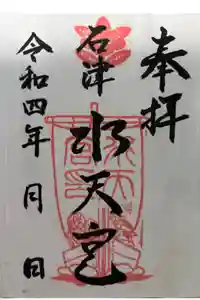 奉拝
石津
水天宮
令和四年 月 日